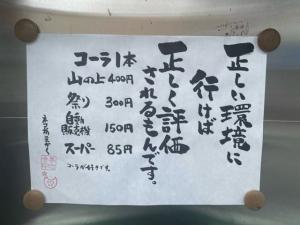 正しい環境に
行けば
正しく評価
されるもんです。
コーラ1本
山の上 400円
祭り 300円
自動販売機 150円
スーパー 85円
コーラが好きです。